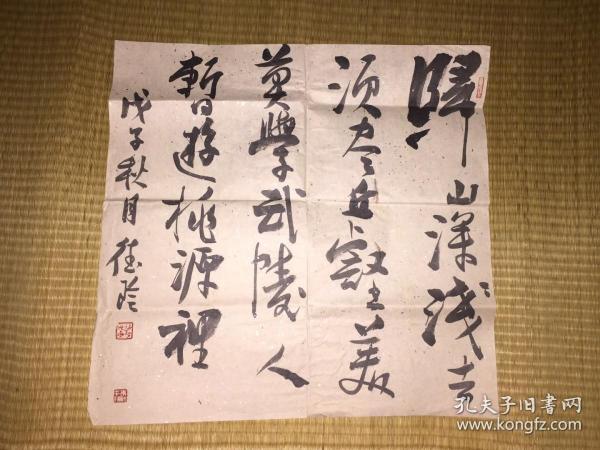 歸山深淺去
須盡丘壑美
莫學武陵人
暫遊桃源裡
戊子秋月
孔夫子旧书网
www.kongfz.com